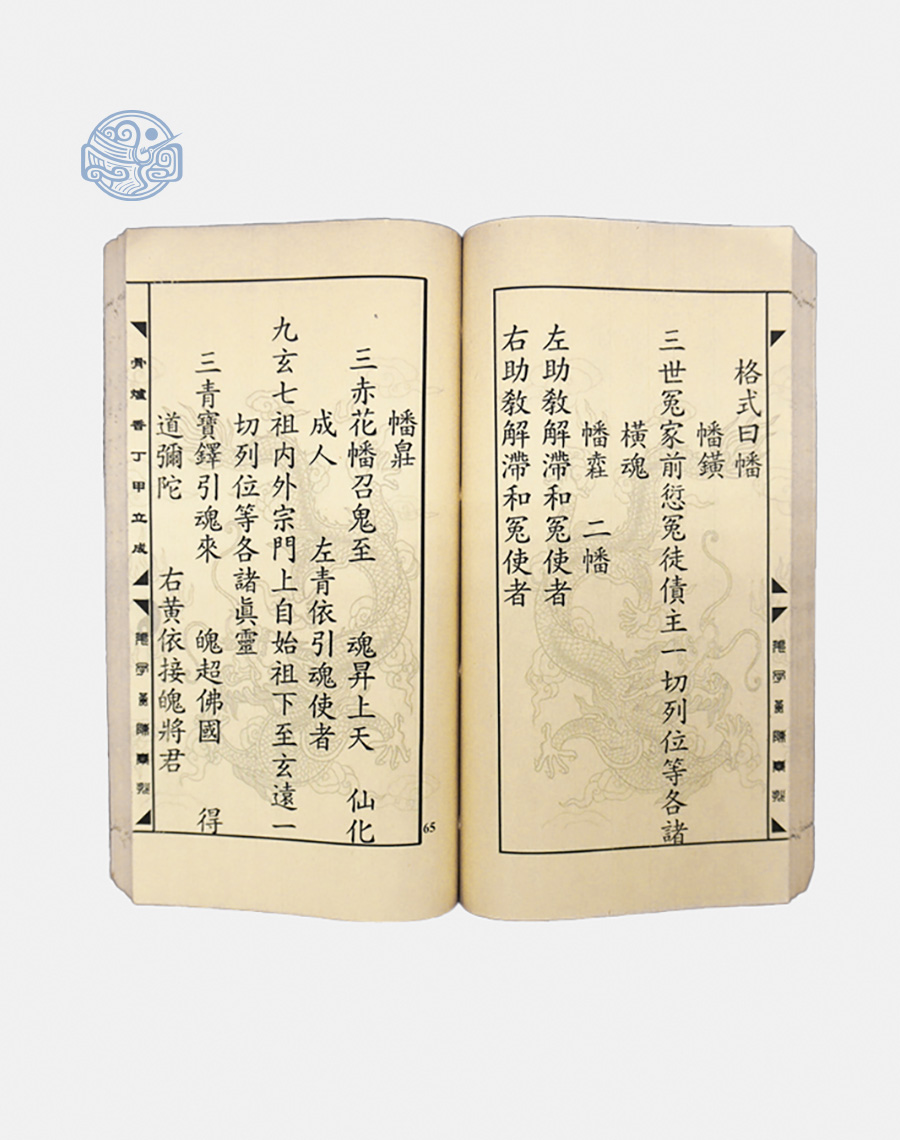 格式曰幡
幡鐄
三世冤家前愆冤徒債主一切列位等各諸
橫魂
幡 二幡
左助敎解滯和冤使者
右助敎解滯和冤使者
幡
三赤花幡召鬼至 魂昇上天 仙化
成人 左青依引魂使者
九玄七祖内外宗門上自始祖下至玄遠一
切列位等各諸眞靈
三青寶鐸引魂來 魄超佛國 得
道彌陀 右黄依接魄將君
骨爐香丁甲立成
65